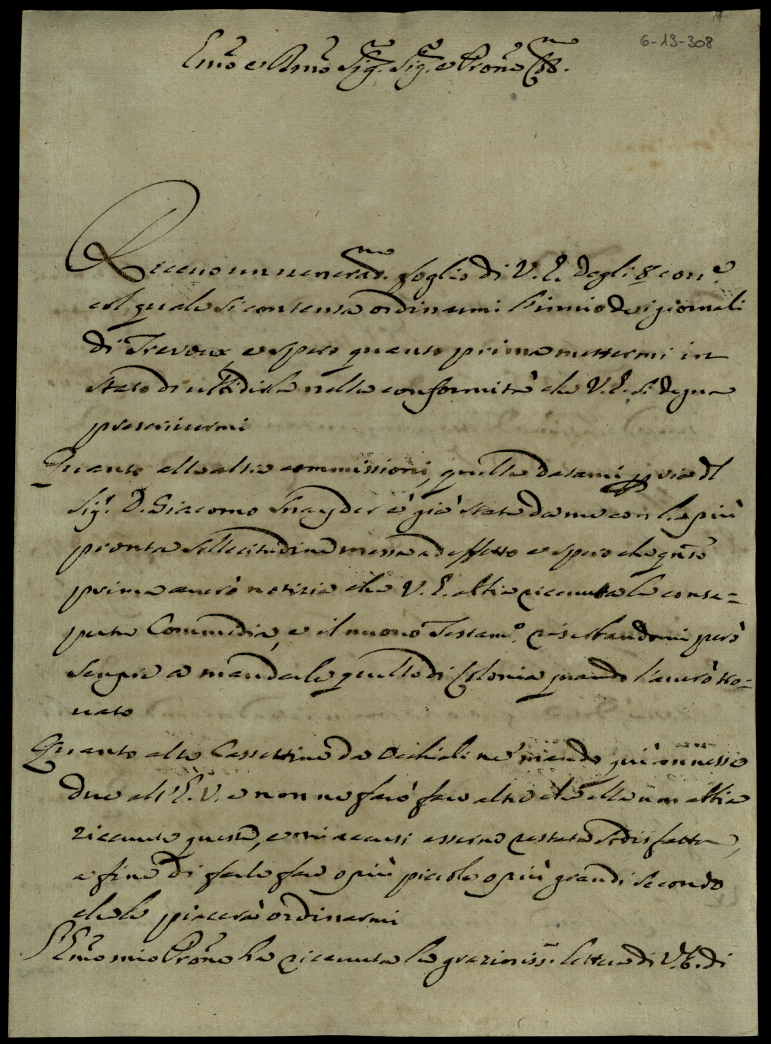 6-13-308
Emo e Rmo Sig.r Sig.r e Pron.e Col.mo
Riceuo un venerat.mo foglio di V. E. degli 8 cor.e
col quale si contenta ordinarmi l'inuio de i giornali
di Trevoux, e spero quanto prima mettermi in
stato di ubbidirla nella conformità che V. E. si degna
prescriuermi
Quanto alle altre commissioni, quella datami p via del
Sig.r D. Giacomo Snayder è già stata da me con la più
pronta sollecitudine messa ad effetto e spero che q.to
prima auerò notizia che V. E. abbia riceuuta la conse-
puta Commedia, e il nuouo Testam.o, riserbandomi però
sempre a mandarle quello di Colonia quando l'auerò tro-
uato
Quanto alle Cassettine da Ochiali ne mando qui annesse
due all'E. V. e non ne farò fare altre che ella non abbia
riceuute queste, e mi accusi esserne restata sodisfatta,
a fine di farle fare o più piccole o più grandi secondo
che le piacerà ordinarmi
L'Emo mio Pron.e ha riceuuta la graziosiss.a lettera di V. E. di